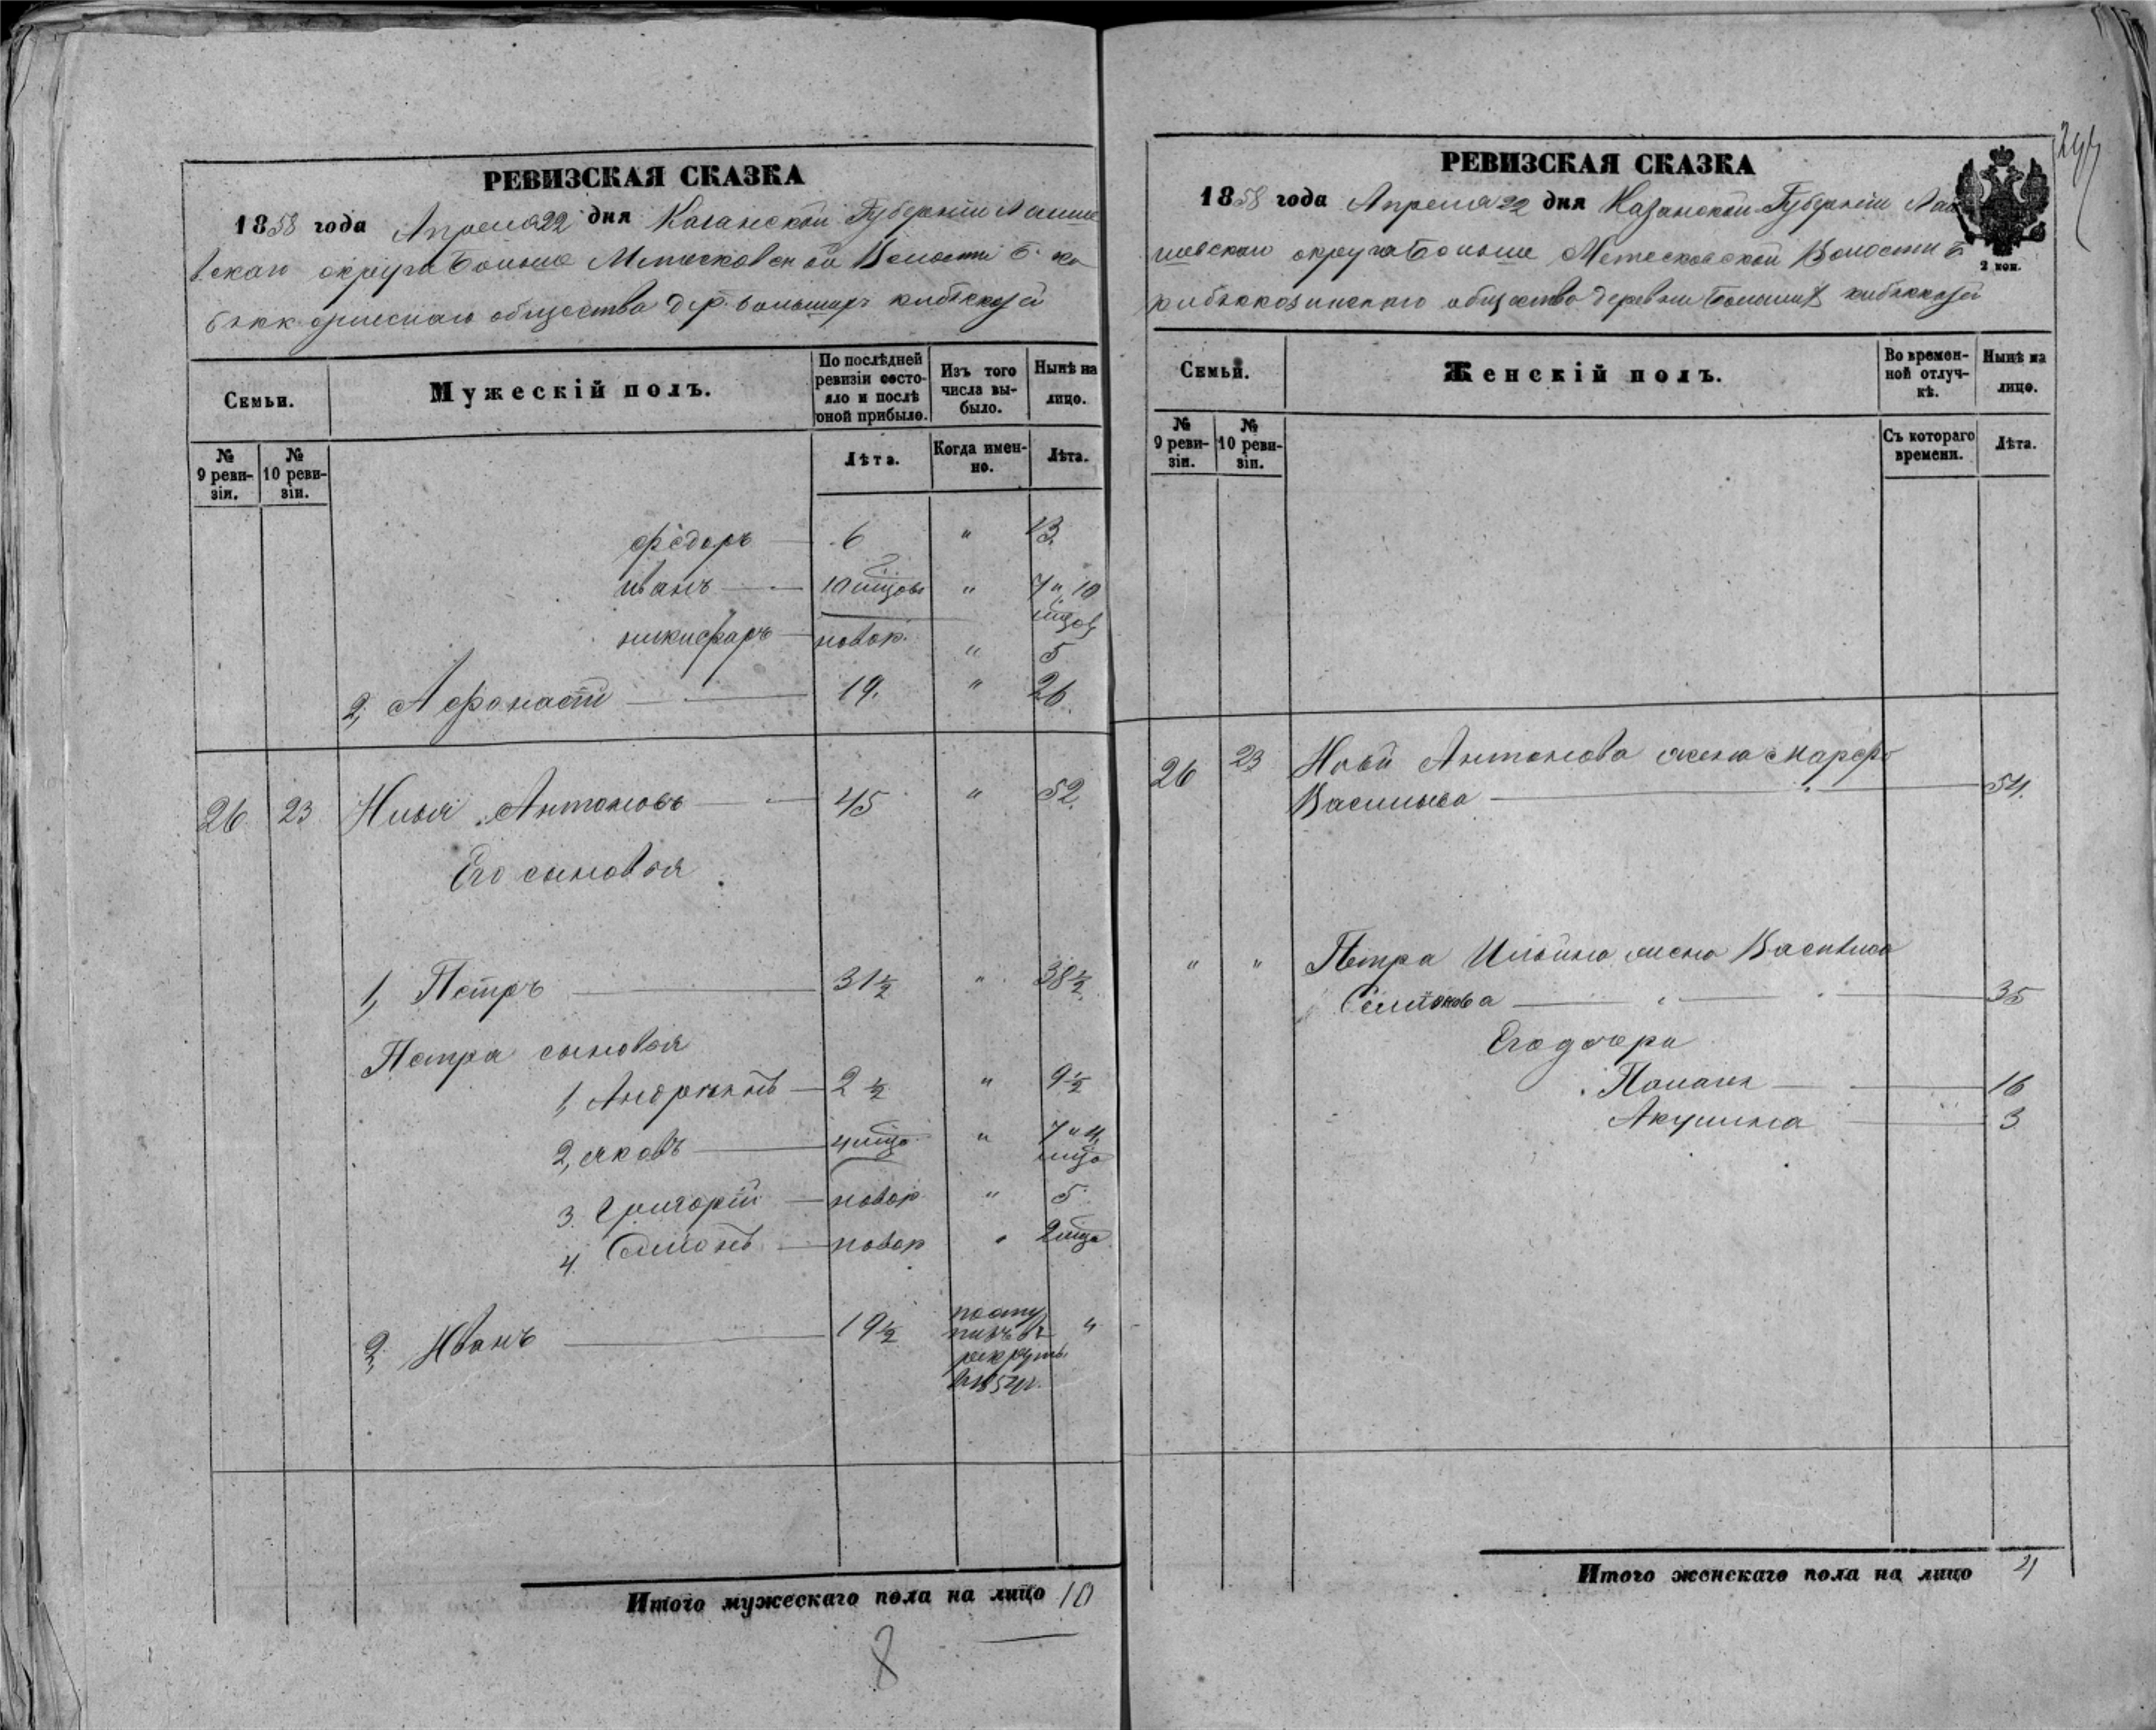 РЕВИЗСКАЯ СКАЗКА
1858 года Апреля 22 дня Казанской Губернiи Лаише
вскаго округа Больше Метесковской Волости Б. ки
бяккозинскаго общества дер. Большихъ кибякозей
Семьи.
Мужескiй полъ.
По послѣдней ревизiи состояло и послѣ оной прибыло.
Изъ того числа выбыло.
Нынѣ на лицо.
№ 9 ревизiи.
№ 10 ревизiи.
Лѣта.
Когда именно.
Лѣта.
Фёдоръ — 6 " 13.
иванъ — 10 мцовъ " 7 " 10 мцовъ
никифаръ — новор. " 5
2, Афонасiй — 19. " 26.
26 23 Илья Антоновъ — 45 " 52.
Его сыновья
1, Петръ — 31 ½ " 38 ½
Петра сыновья
1, Андреянъ — 2 ½ " 9 ½
2, яковъ — 4 мца " 7 " 4 мца
3. Григорiй — новор " 5.
4. Семiонъ — новор " 2 мца
2, Иванъ — 19 ½ посту "
пилъ въ
рекруты
в 1854 г.
Итого мужескаго пола на лицо 10
8
РЕВИЗСКАЯ СКАЗКА
244
1858 года Апреля 22 дня Казанской Губернiи Лаи
шевскаго округа Больше Метесковской Волости Б
2 коп.
кибяккозинскаго общества деревни Большихъ кибяккозей
Семьи.
Женскiй полъ.
Во временной отлучкѣ.
Нынѣ на лицо.
№ 9 ревизiи.
№ 10 ревизiи.
Съ котораго времени.
Лѣта.
26 23 Ильи Антонова жена Марфа
Васильева — 54.
" " Петра Ильина жена Василиса
Семiонова — 35
Его дочери
Палагея — 16
Акулина — 3
Итого женскаго пола на лицо 4